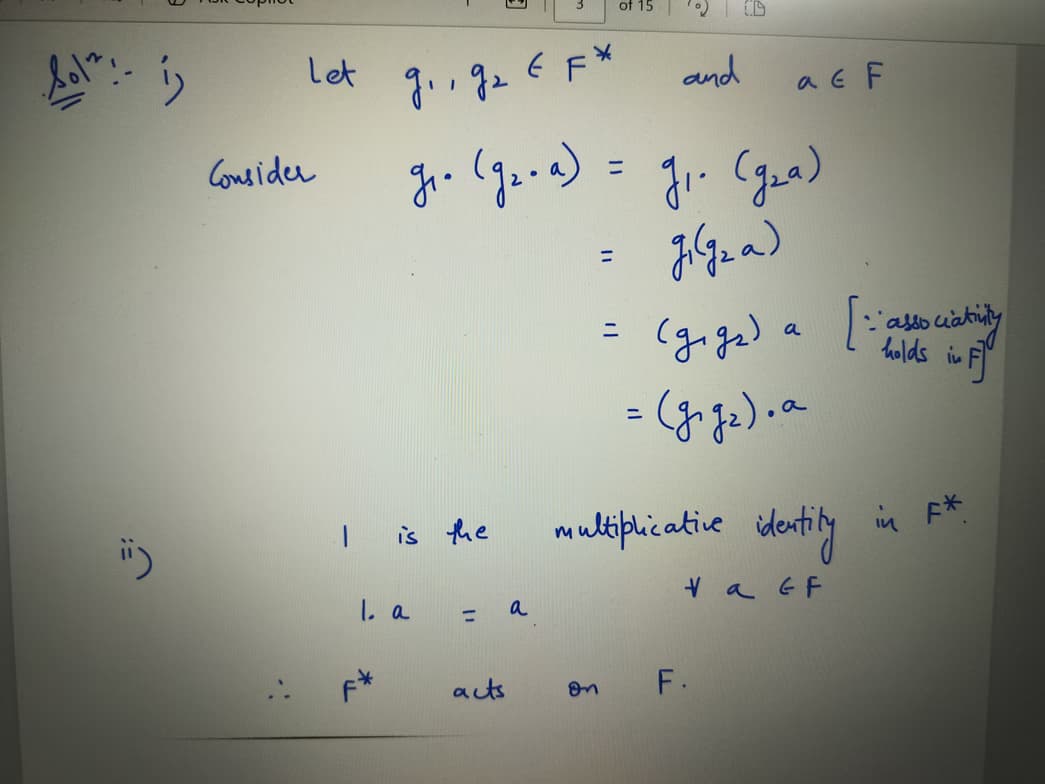 3 of 15
Solⁿ:- i) Let g₁, g₂ ∈ F* and a ∈ F
Consider g₁·(g₂·a) = g₁·(g₂a)
= g₁(g₂a)
= (g₁g₂)a [∵ associativity
holds in F]
= (g₁g₂)·a
ii) 1 is the multiplicative identity in F*.
1.a = a ∀ a ∈ F
∴ F* acts on F.